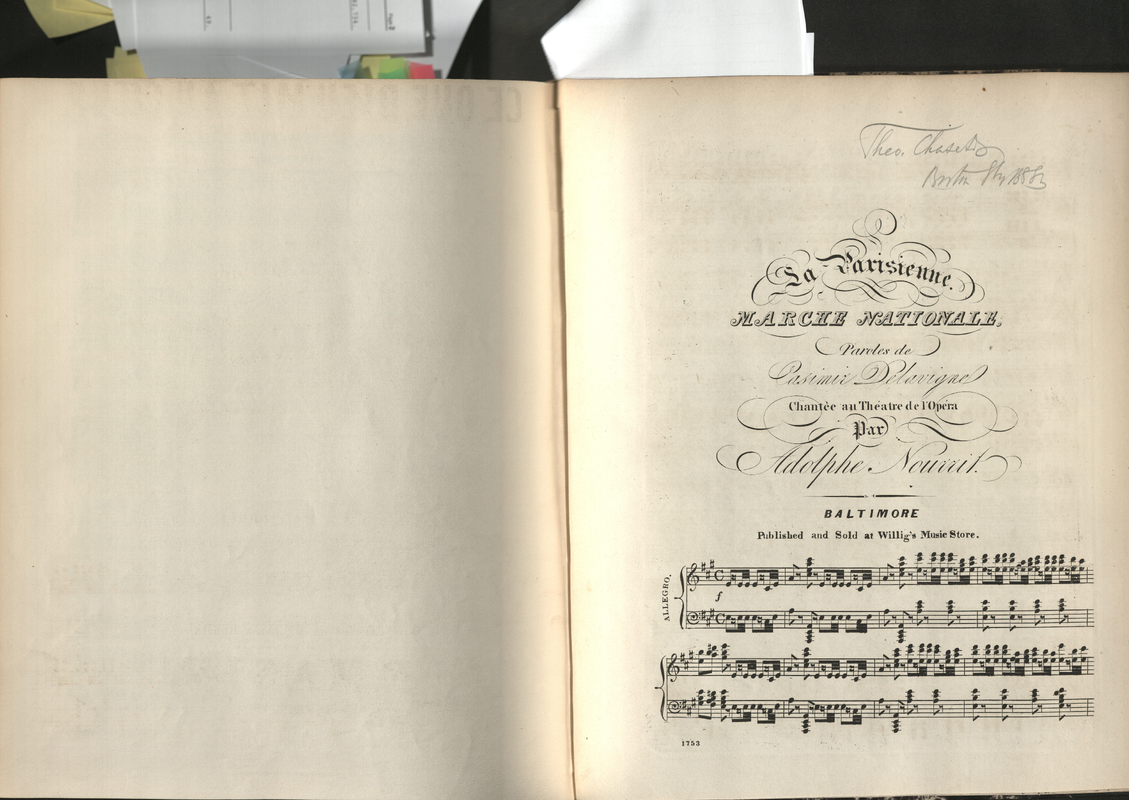 Theo. Chase
La Parisienne.
MARCHE NATIONALE,
Paroles de
Casimir Delavigne
Chantèe au Théatre de l'Opéra
Par
Adolphe Nourrit.
BALTIMORE
Published and Sold at Willig's Music Store.
ALLEGRO.
f
1753